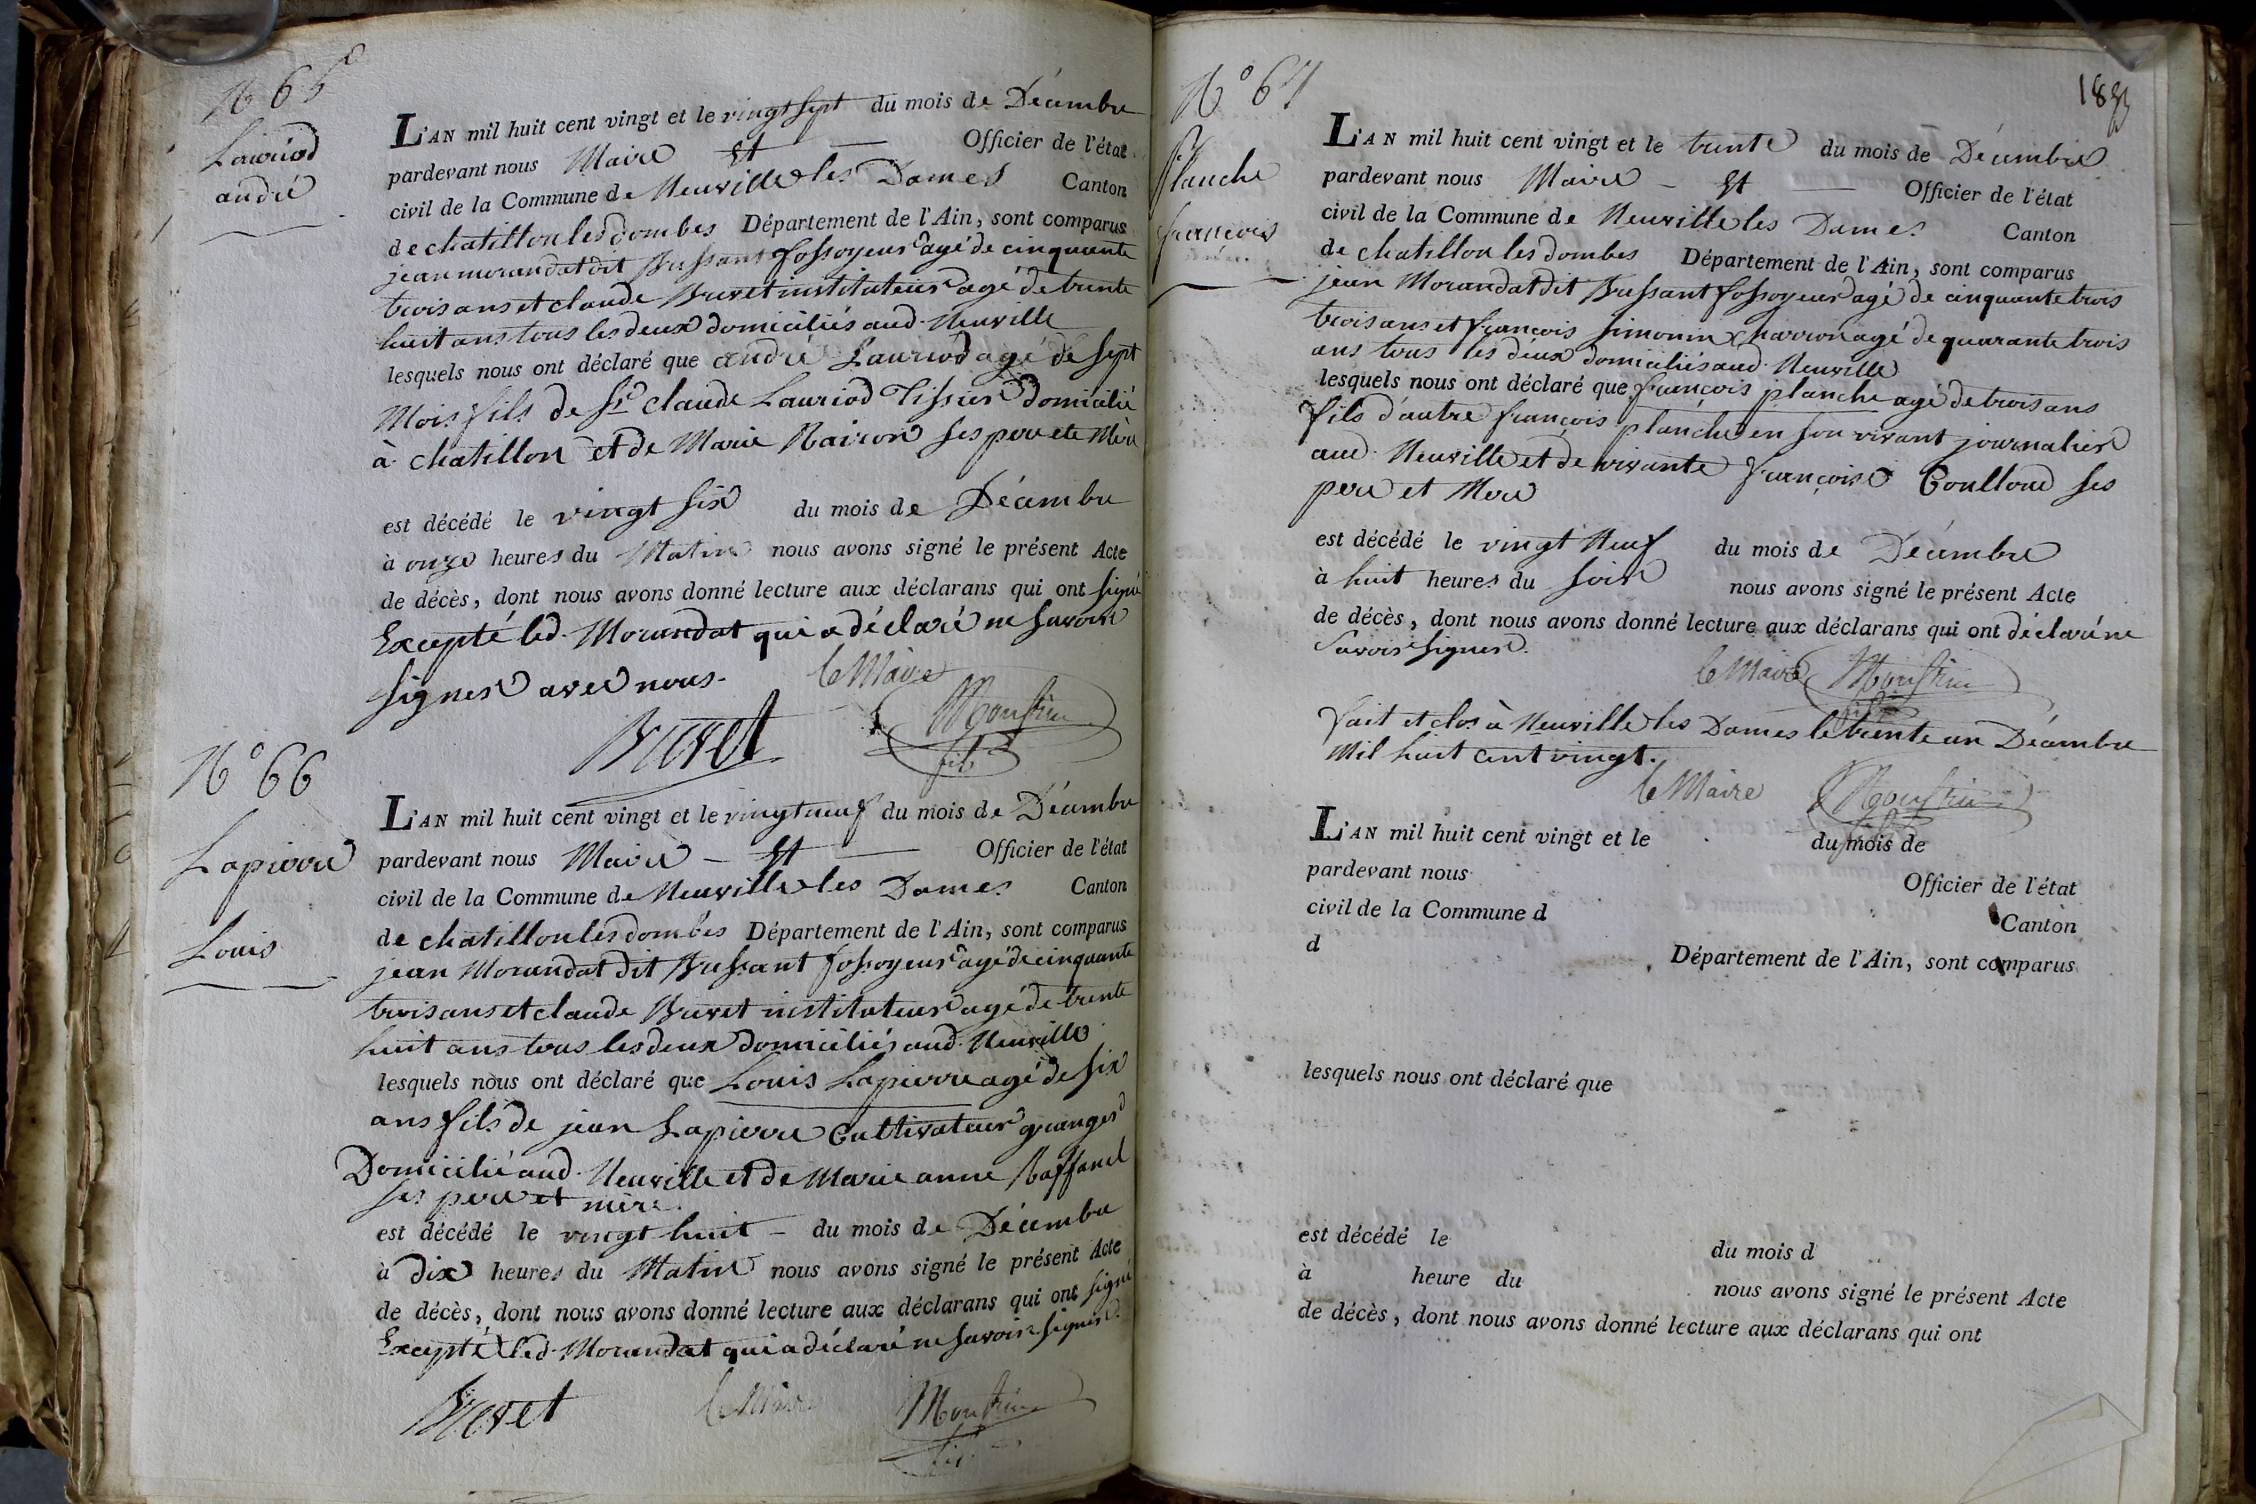 N° 65
Lauriod
andré
L'AN mil huit cent vingt et le vingt sept du mois de Décembre
pardevant nous Maire et Officier de l'état
civil de la Commune de Neuville les Dames Canton
de chatillon les dombes Département de l'Ain, sont comparus
jean morandat dit Bussant fossoyeur agé de cinquante
trois ans et claude Buvet instituteur agé de trente
huit ans tous les deux domiciliés aud. Neuville
lesquels nous ont déclaré que andré Lauriod agé de sept
Mois fils de Sr. claude Lauriod Tissier domicilié
à chatillon et de Marie Rairon ses pere et Mère
est décédé le vingt six du mois de Décembre
à onze heures du Matin nous avons signé le présent Acte
de décès, dont nous avons donné lecture aux déclarans qui ont signé
Excepté led. Morandat qui a déclaré ne savoir
signer avec nous.
le Maire
Buvet
fils
N° 66
Lapierre
Louis
L'AN mil huit cent vingt et le vingt neuf du mois de Décembre
pardevant nous Maire - et Officier de l'état
civil de la Commune de Neuville les Dames Canton
de chatillon les dombes Département de l'Ain, sont comparus
jean Morandat dit Bussant fossoyeur agé de cinquante
trois ans et claude Buvet instituteur agé de trente
huit ans tous les deux domiciliés aud. Neuville
lesquels nous ont déclaré que Louis Lapierre agé de six
ans fils de jean Lapierre Cultivateur granger
Domicilié aud. Neuville et de Marie anne Raffanel
ses pere et mère.
est décédé le vingt huit - du mois de Décembre
à dix heures du Matin nous avons signé le présent Acte
de décès, dont nous avons donné lecture aux déclarans qui ont signé
Excepté led. Morandat qui a déclaré ne savoir signer.
Buvet le Maire
fils
N° 67
planche
françois
L'AN mil huit cent vingt et le trente du mois de Décembre
pardevant nous Maire - et Officier de l'état
civil de la Commune de Neuville les Dames Canton
de chatillon les dombes Département de l'Ain, sont comparus
jean Morandat dit Bussant fossoyeur agé de cinquante trois
trois ans et françois Simonin charron agé de quarante trois
ans tous les deux domiciliés aud. Neuville
lesquels nous ont déclaré que françois planche agé de trois ans
fils d'autre françois planche en son vivant journalier
aud. Neuville et de vivante françoise Coulloud ses
pere et Mere
est décédé le vingt Neuf du mois de Décembre
à huit heures du soir nous avons signé le présent Acte
de décès, dont nous avons donné lecture aux déclarans qui ont déclaré ne
savoir signer.
le Maire
fils
fait et clos à Neuville les Dames le trente un Décembre
Mil huit cent vingt.
le Maire
L'AN mil huit cent vingt et le du mois de
pardevant nous Officier de l'état
civil de la Commune d Canton
d Département de l'Ain, sont comparus
lesquels nous ont déclaré que
est décédé le du mois d
à heure du nous avons signé le présent Acte
de décès, dont nous avons donné lecture aux déclarans qui ont